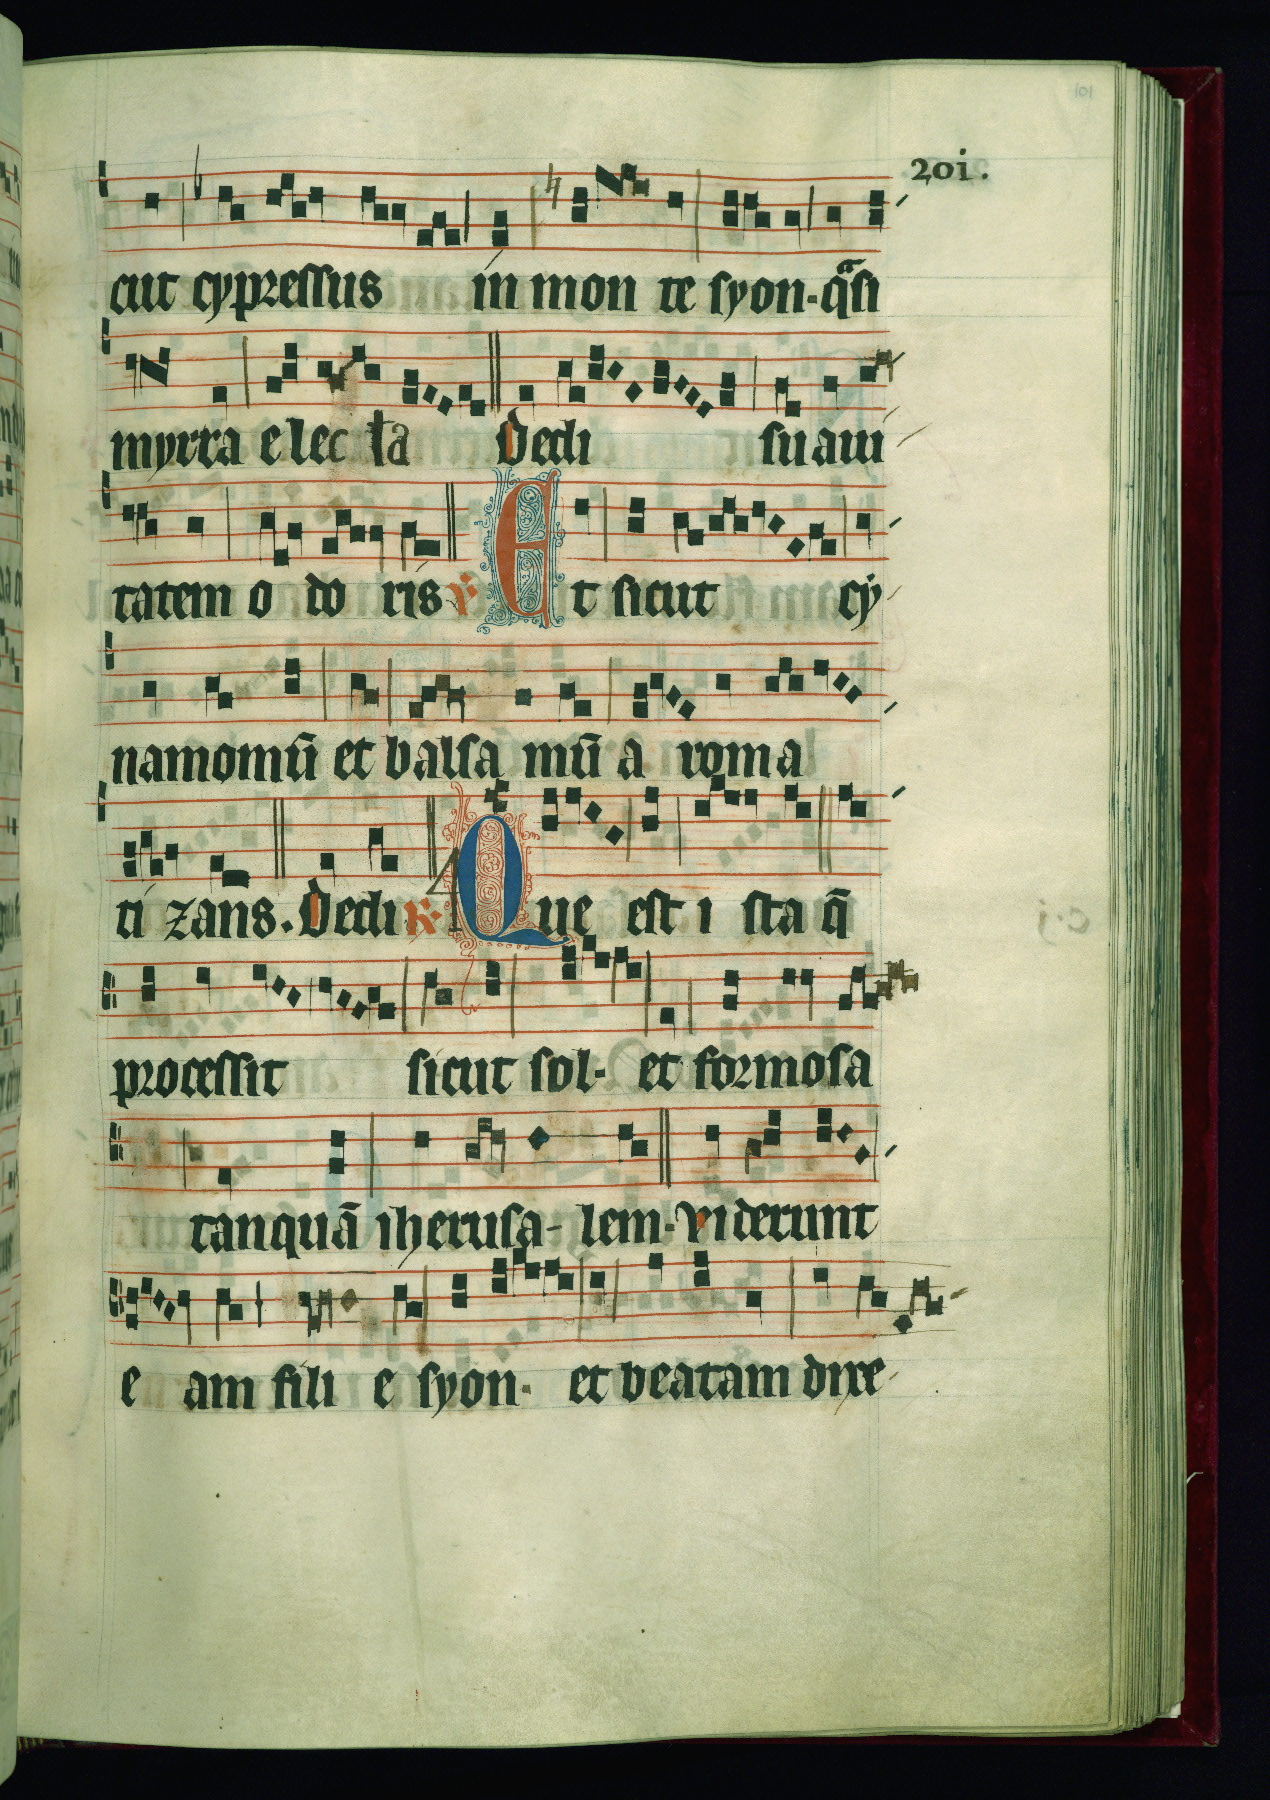 101
201.
cut cypressus in mon te syon. q̄si
myrra e lec ta Dedi su aui
tatem o do ris ℣ Et sicut cy
namomū et balsa mū a roma
ti zans. Dedi ℟ Que est i sta q̄
processit sicut sol. et formosa
tanquā iherusa- lem. viderunt
e am fili e syon. et beatam dixe